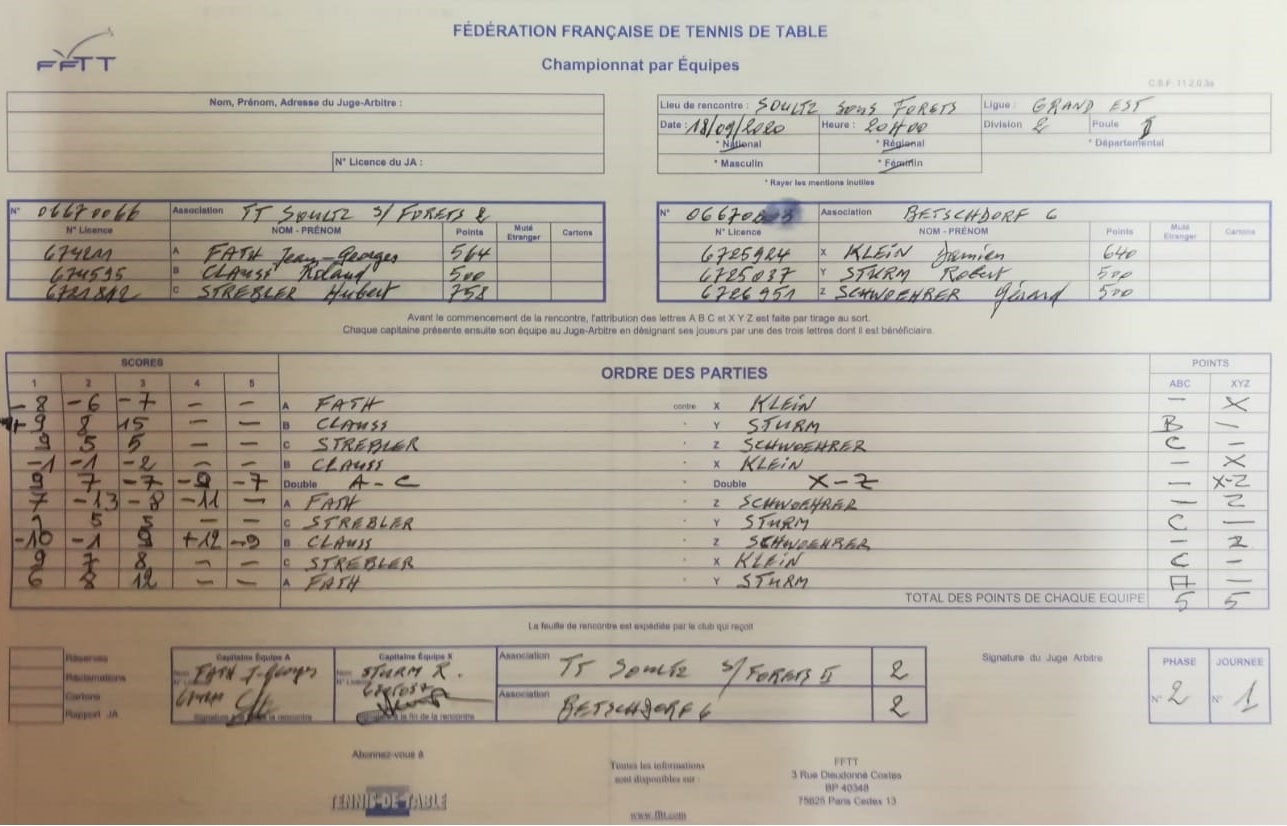 FÉDÉRATION FRANÇAISE DE TENNIS DE TABLE
FFTT
Championnat par Équipes
Nom, Prénom, Adresse du Juge-Arbitre :
N° Licence du JA :
Lieu de rencontre : SOULTZ sous FORETS Ligue : GRAND EST
Date : 18/09/2020 Heure : 20H00 Division 2 Poule
* National * Régional * Départemental
* Masculin * Féminin
* Rayer les mentions inutiles
N° 06670066 Association TT SOULTZ S/ FORETS 2
N° Licence NOM - PRÉNOM Points Muté Etranger Cartons
A FATH Jean-Georges 564
674595 B CLAUSS Roland 500
C STREBLER Hubert 758
N° 06670 Association BETSCHDORF 6
N° Licence NOM - PRÉNOM Points Muté Etranger Cartons
6725924 X KLEIN Damien 640
6725037 Y STURM Robert 500
6726951 Z SCHWOEHRER Gérard 500
Avant le commencement de la rencontre, l'attribution des lettres A B C et X Y Z est faite par tirage au sort.
Chaque capitaine présente ensuite son équipe au Juge-Arbitre en désignant ses joueurs par une des trois lettres dont il est bénéficiaire.
SCORES ORDRE DES PARTIES POINTS
1 2 3 4 5 ABC XYZ
-8 -6 -7 - - A FATH contre X KLEIN - X
9 8 15 - - B CLAUSS " Y STURM B -
9 5 5 - - C STREBLER " Z SCHWOEHRER C -
-1 -1 -2 - - B CLAUSS " X KLEIN - X
9 7 -7 -9 -7 Double A-C Double X-Z - X-Z
7 -13 -8 -11 - A FATH " Z SCHWOEHRER - Z
5 5 - - C STREBLER " Y STURM C -
-10 -1 9 +12 -9 B CLAUSS " Z SCHWOEHRER - Z
9 7 8 - - C STREBLER " X KLEIN C -
6 8 12 - - A FATH " Y STURM A -
TOTAL DES POINTS DE CHAQUE EQUIPE 5 5
La feuille de rencontre est expédiée par le club qui reçoit
Réserves
Réclamations
Cartons
Rapport JA
Capitaine Équipe A
Nom FATH J-Georges
N° Licence
Signature à la fin de la rencontre
Capitaine Équipe X
Nom STURM R.
N° Licence
Signature à la fin de la rencontre
Association TT SOULTZ S/ FORETS II 2
Association BETSCHDORF 6 2
Signature du Juge Arbitre
PHASE JOURNEE
N° 2 N° 1
Abonnez-vous à
TENNIS-DE-TABLE
Toutes les informations
sont disponibles sur :
www.fftt.com
FFTT
3 Rue Dieudonné Costes
BP 40348
75625 Paris Cedex 13